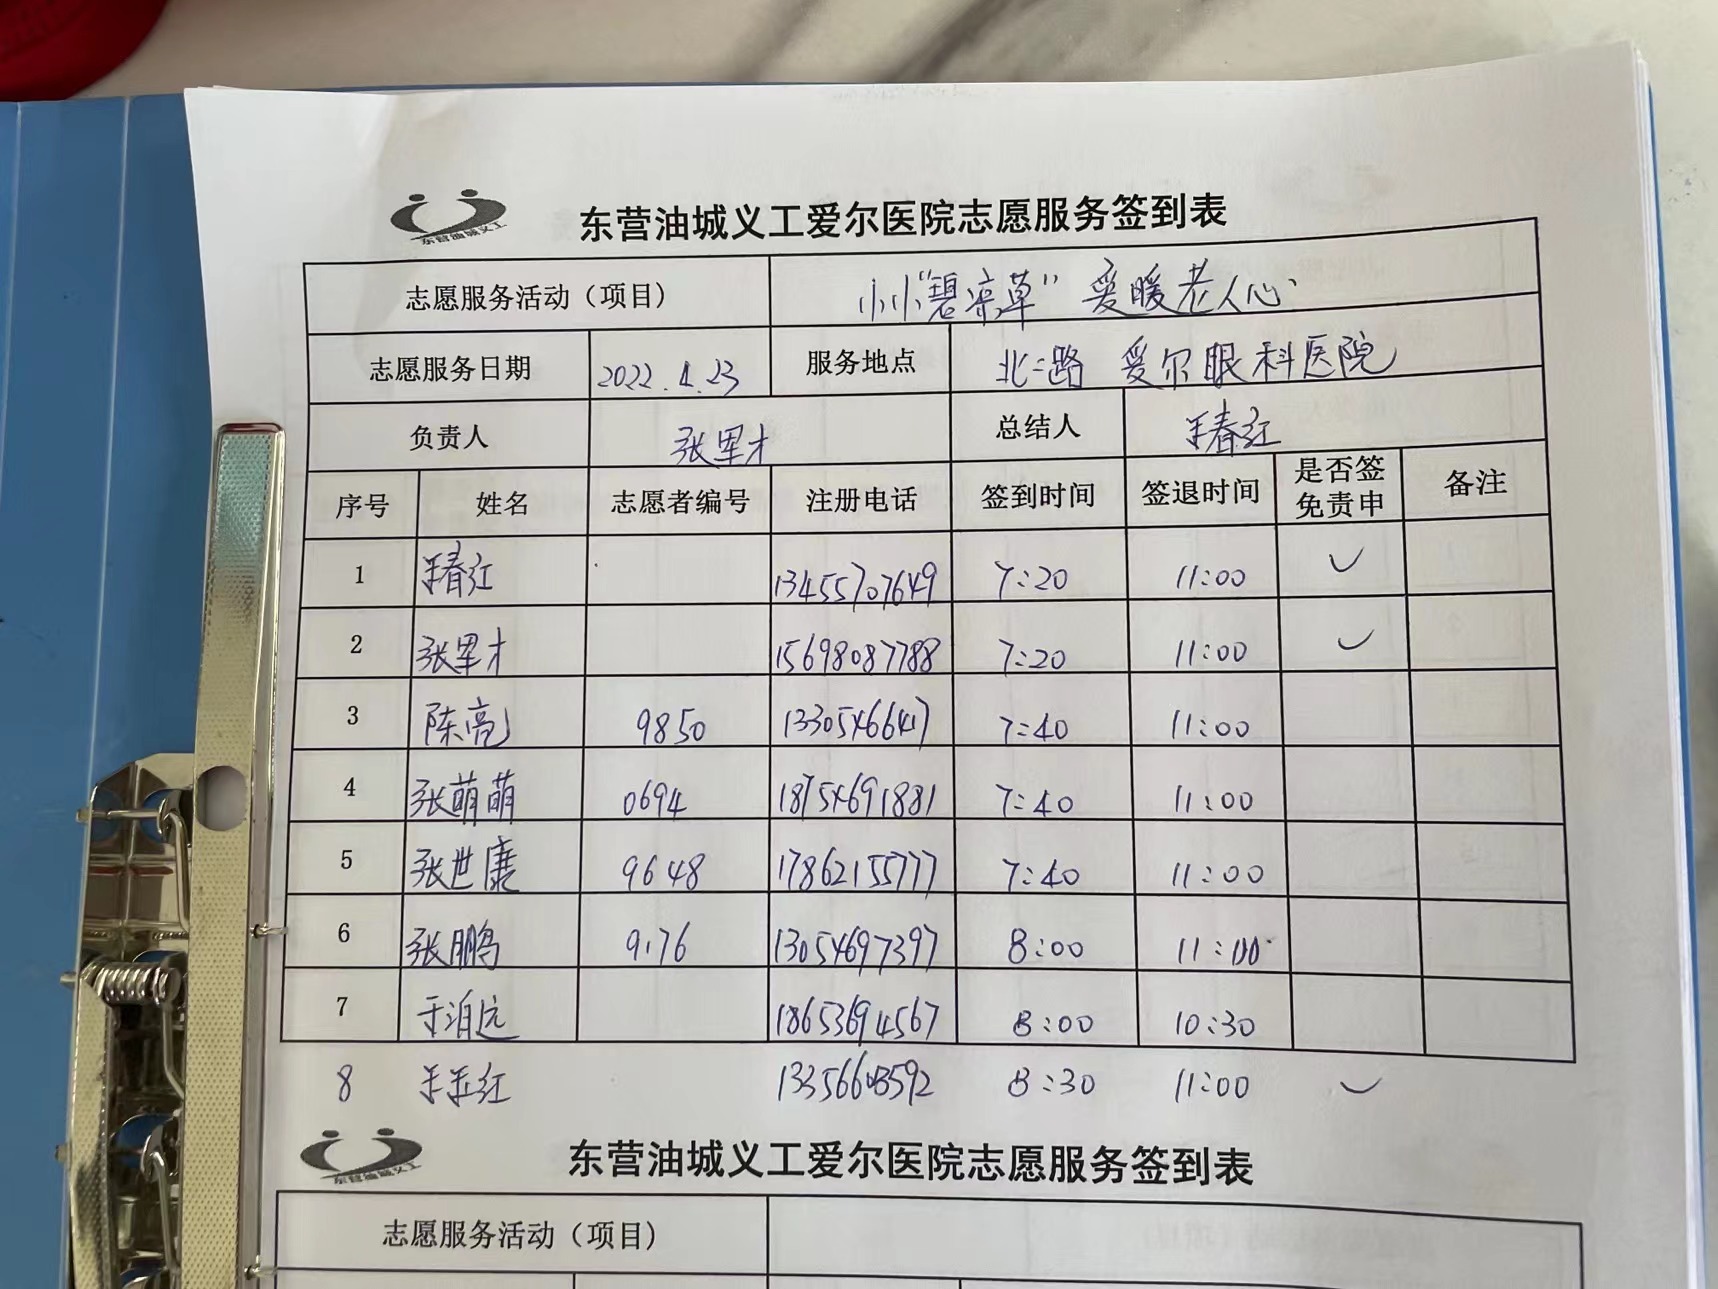 东营油城义工
东营油城义工爱尔医院志愿服务签到表
志愿服务活动（项目） 小小“碧凉草”爱暖老人心
志愿服务日期 2022.4.23 服务地点 北二路 爱尔眼科医院
负责人 张军才 总结人 王春红
序号 姓名 志愿者编号 注册电话 签到时间 签退时间 是否签免责申 备注
1 王春红 13455707649 7:20 11:00 ✓
2 张军才 15698087788 7:20 11:00 ✓
3 陈亮 9850 13305466417 7:40 11:00
4 张萌萌 0694 18754691881 7:40 11:00
5 张世康 9648 17862155777 7:40 11:00
6 张鹏 9176 13054697397 8:00 11:00
7 于泊远 18653694567 8:00 10:30
8 王玉红 13356603592 8:30 11:00 ✓
东营油城义工
东营油城义工爱尔医院志愿服务签到表
志愿服务活动（项目）